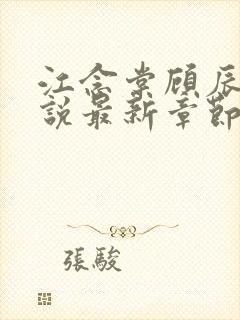 江念棠顾辰
說最新章節
張駿